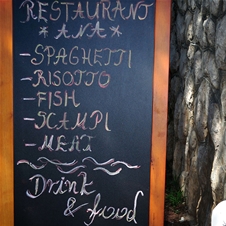 RESTAURANT
* ANA *
-SPAGHETTI
-RISOTTO
-FISH
-SCAMPI
-MEAT
Drink
& food